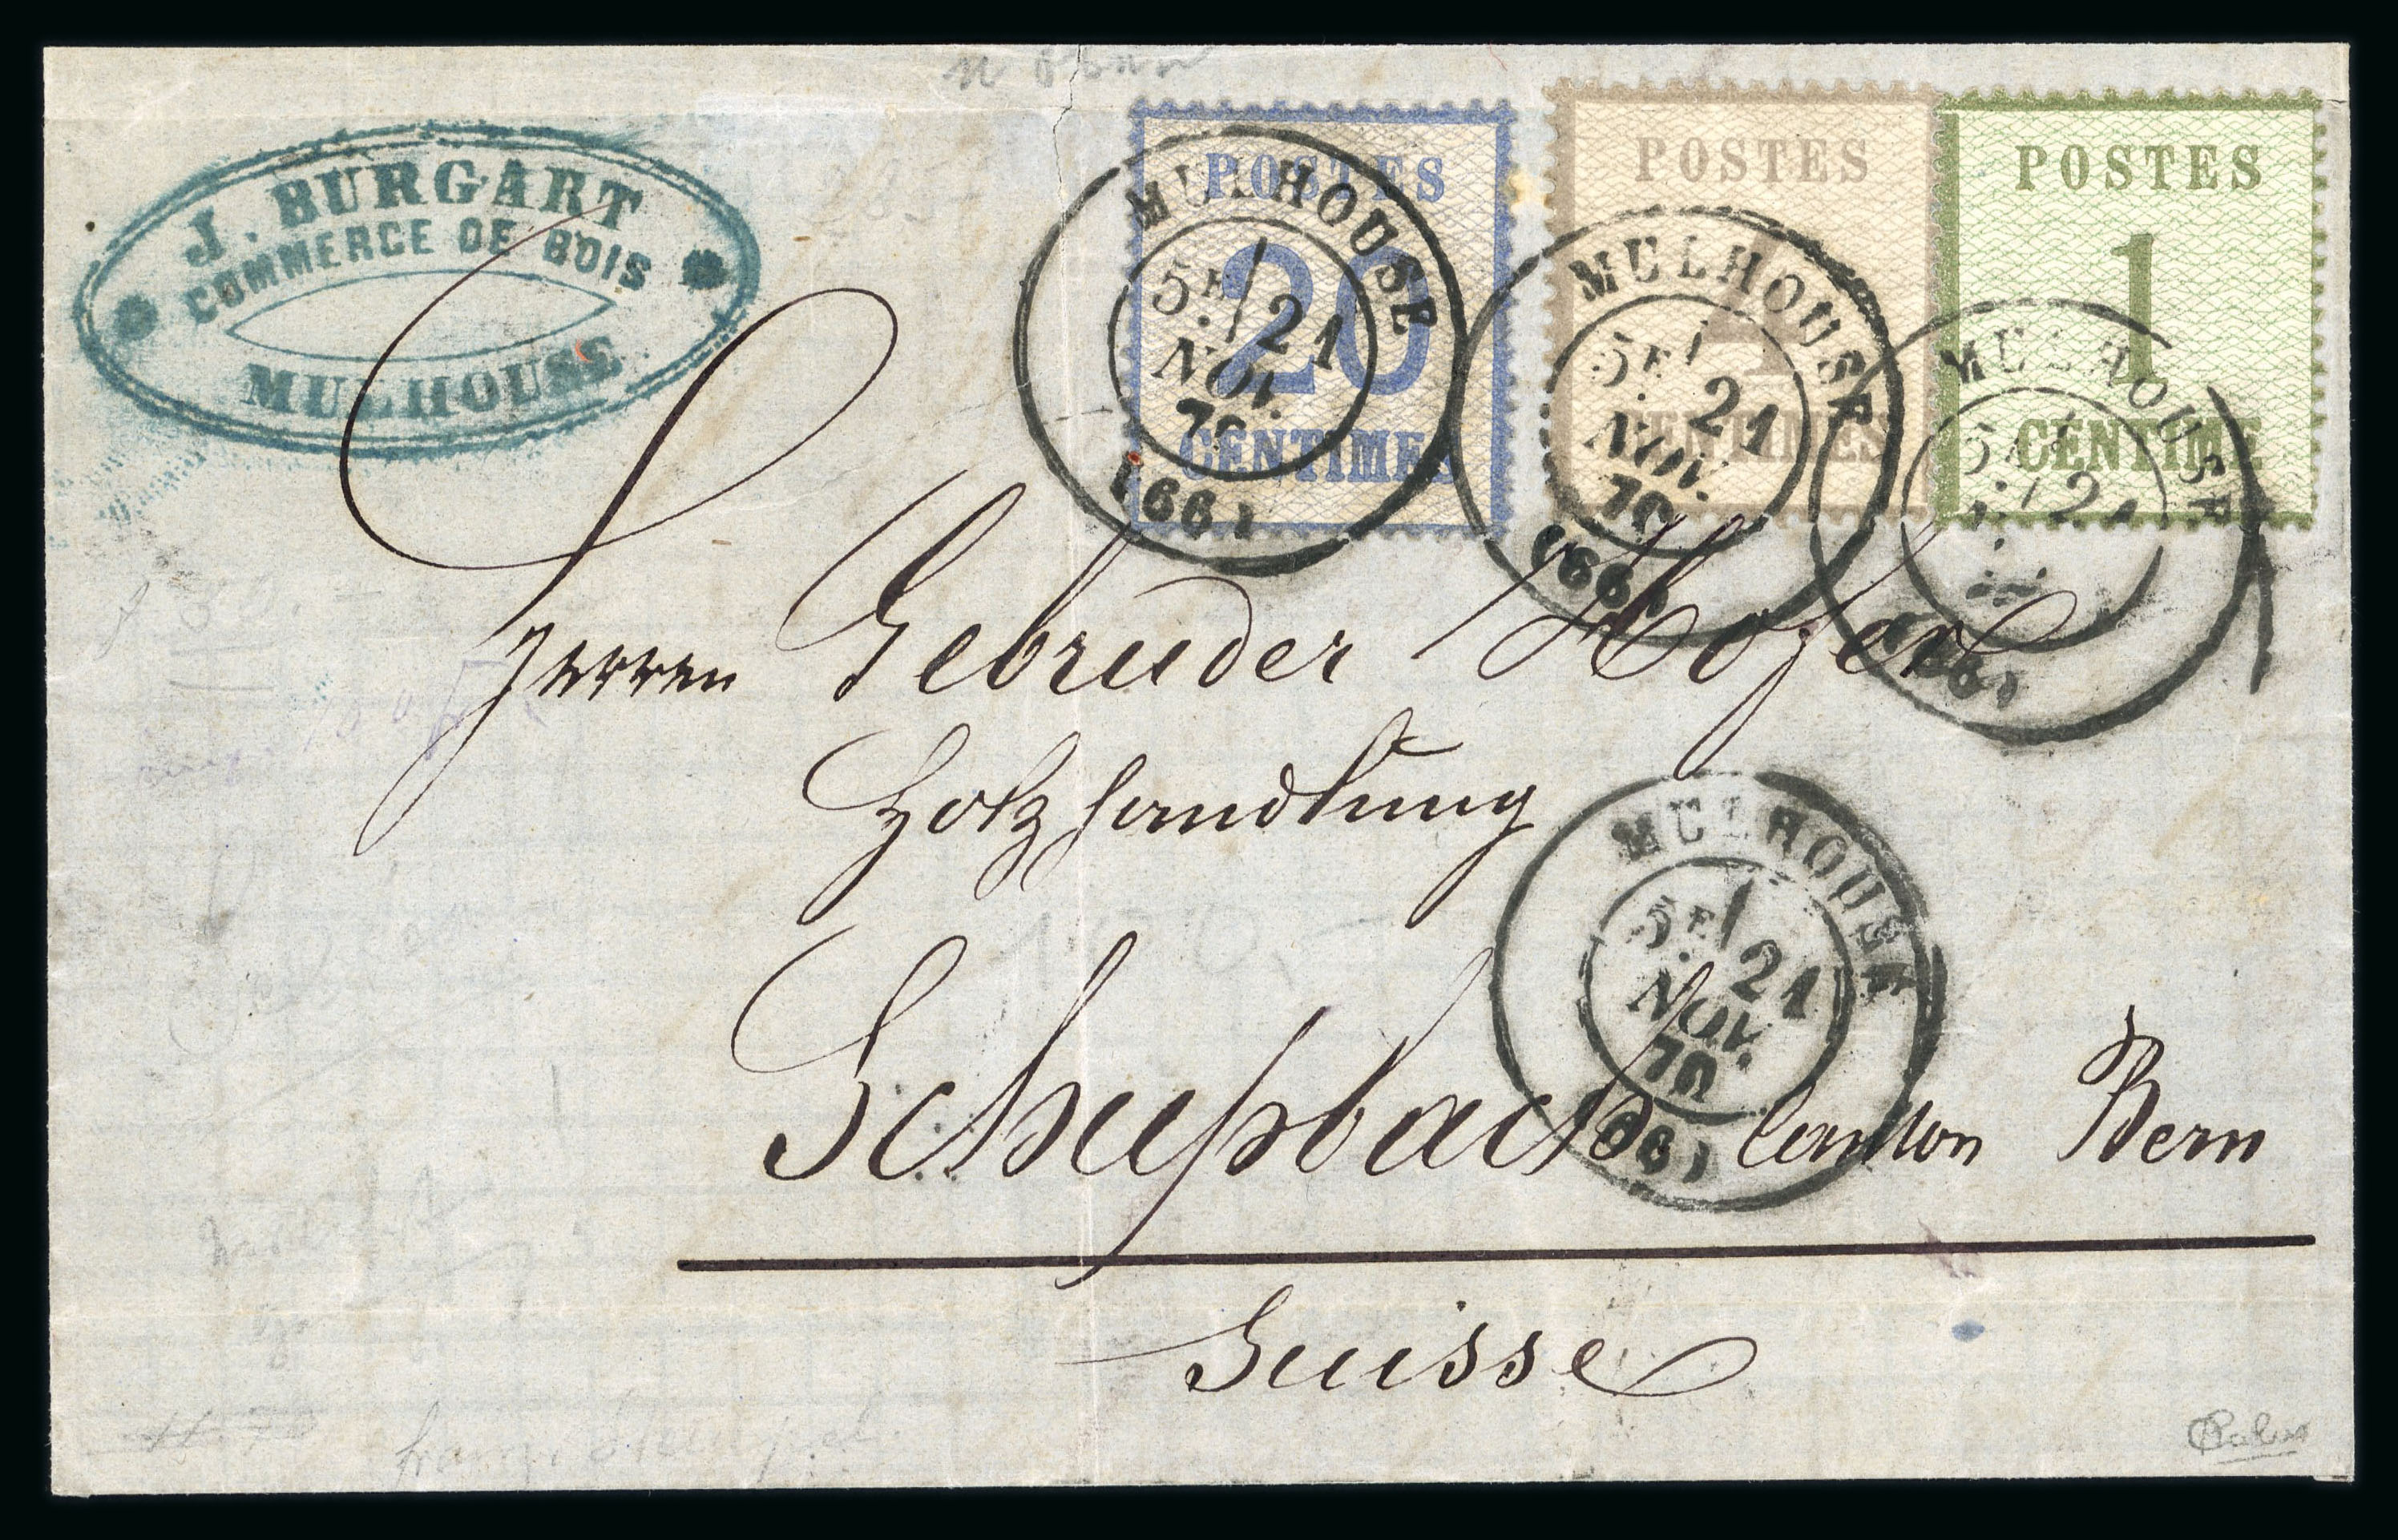 J. BURGART
COMMERCE DE BOIS
MULHOUSE
POSTES
20
CENTIMES
POSTES
4
CENTIMES
POSTES
1
CENTIME
MULHOUSE
5E/
21
NOV.
70
(66)
MULHOUSE
5E/
21
NOV.
70
(66)
MULHOUSE
5E/
21
(66)
Herren Gebruder Hofer
Holzhandlung
Schupbach Canton Bern
Suisse
MULHOUSE
5E/
21
NOV.
70
(66)